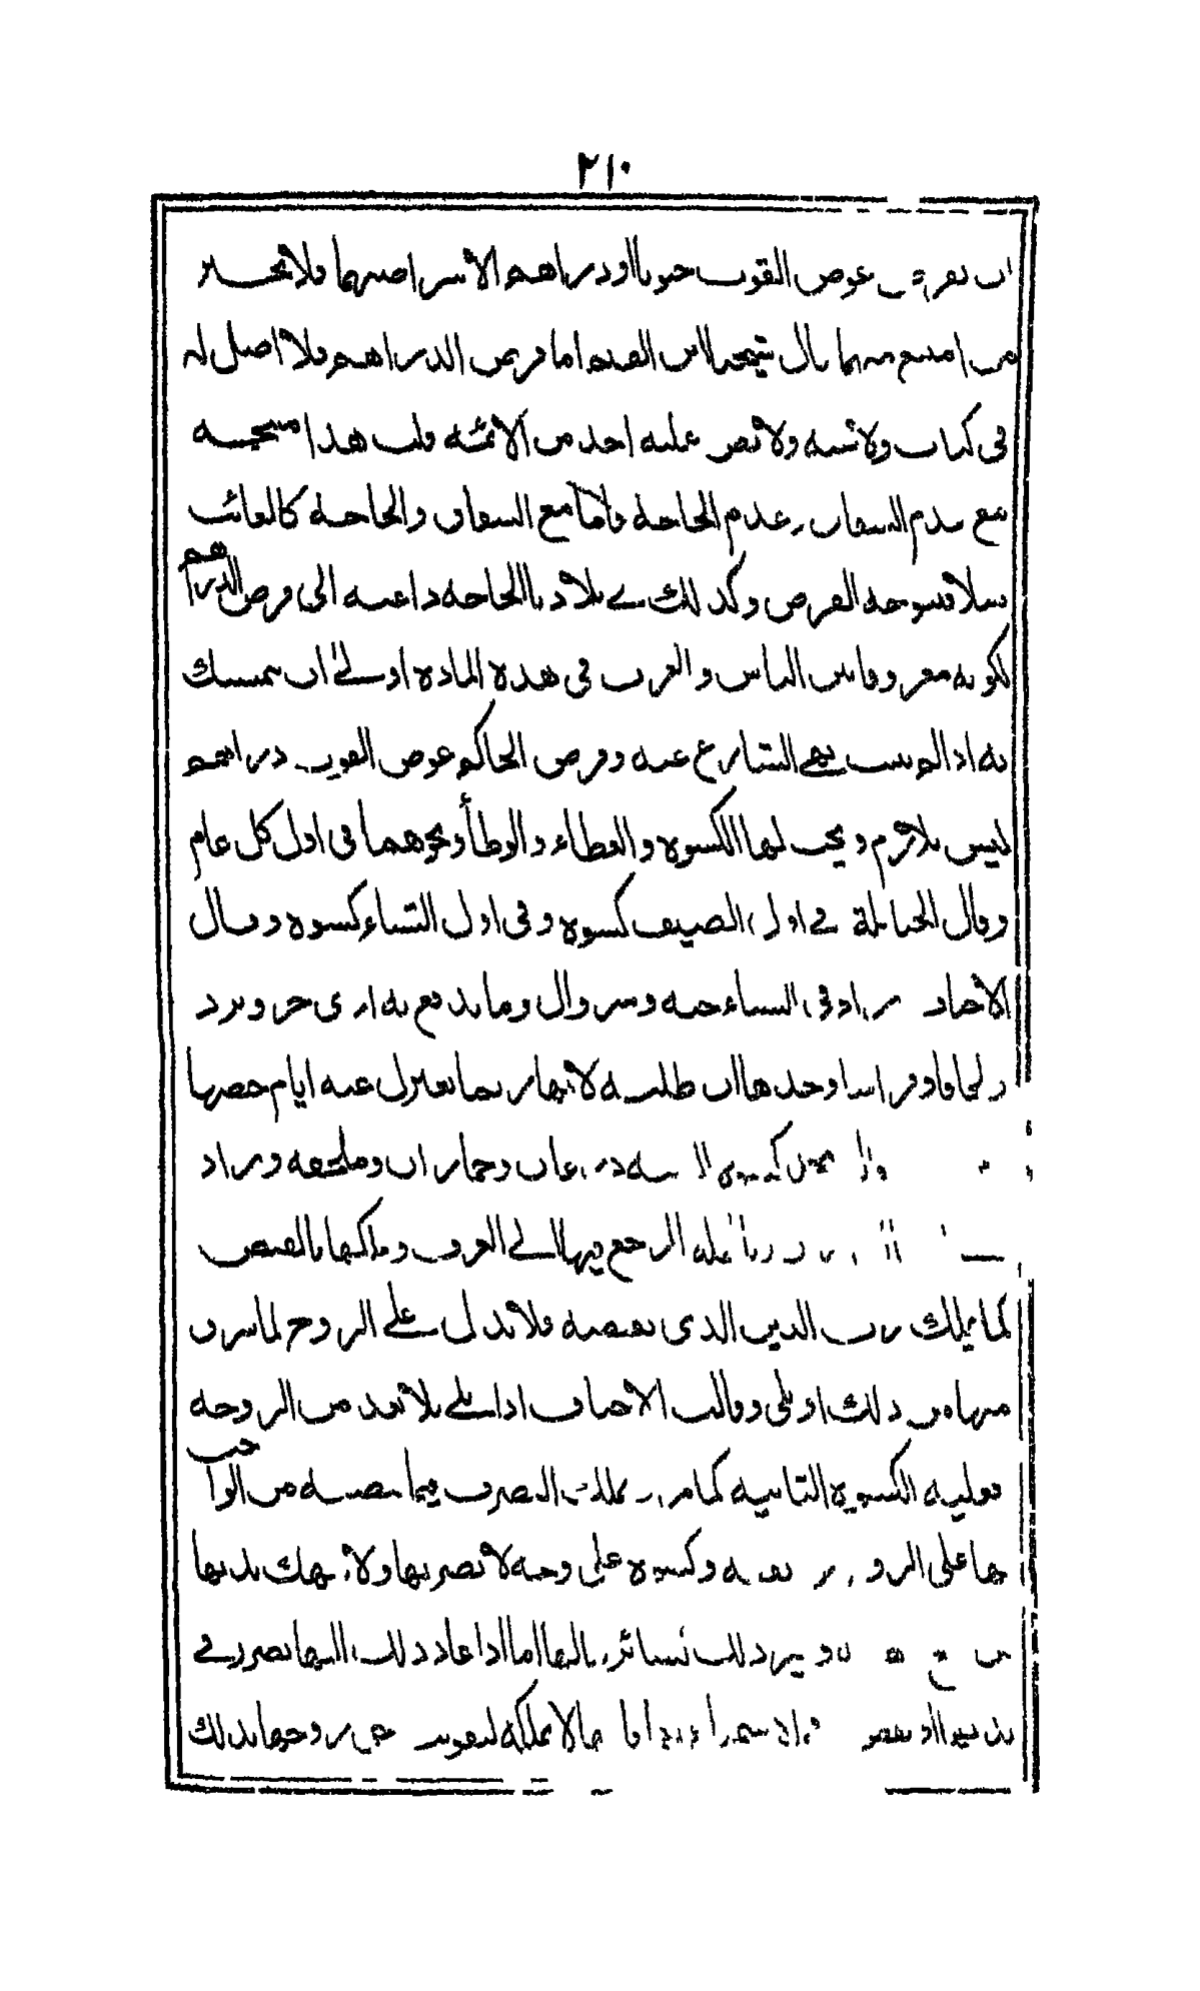 ٢١٠
ان يفرض عوض القوت حبوبا او دراهم الا بتراضيهما فلا يجبر
من امتنع منهما قال شيخنا لابن القيم اما فرض الدراهم فلا اصل له
في كتاب ولا سنة ولا نص عليه احد من الائمة قلت هذا متجه
مع عدم الشقاق وعدم الحاجة واما مع الشقاق والحاجة كالغائب
مثلا فيتوجه الفرض وكذلك في بلادنا الحاجة داعية الى فرض الدراهم
لكونه معروفا بين الناس والعرف في هذه المادة اولى ان يتمسك
به اذا لم يثبت نهي الشارع عنه وفرض الحاكم عوض القوت دراهم
ليس بلازم ويجب لها الكسوة والغطاء والوطأ ونحوهما في اول كل عام
وقال الحنابلة في اول الصيف كسوة وفي اول الشتاء كسوة وقال
الاحناف يزاد في الشتاء جبة وسروال وما يدفع به اذى حر وبرد
ولحافا وفراشا وحدها ان طلبته لانها ربما تعتزل عنه ايام حيضها
كسوة درعان وخماران وملحفة وزاد
المرجع فيها الى العرف وتملكها بالقبض
كما يملك رب الدين الذي يقبضه فلا بدل على الزوج لما سرق
منها من ذلك او بلي وقالت الاحناف اذا بلي بلا تعد من الزوجة
فعليه الكسوة الثانية كما مر وتملك التصرف فيما تقبضه من الواجب
لها على الزوج من نفقة وكسوة على وجه لا يضر بها ولا ينهك بدنها
ويرد ذلك سائر مالها اما اذا عاد ذلك اليها بضرر في
بدن او نقص لا تملكه لتفويت حق زوجها بذلك